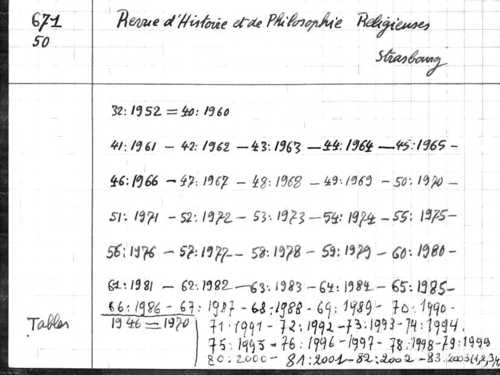 671
50
Revue d'Histoire et de Philosophie Religieuses
Strasbourg
32:1952 = 40:1960
41:1961 - 42:1962 - 43:1963 - 44:1964 - 45:1965 -
46:1966 - 47:1967 - 48:1968 - 49:1969 - 50:1970 -
51:1971 - 52:1972 - 53:1973 - 54:1974 - 55:1975 -
56:1976 - 57:1977 - 58:1978 - 59:1979 - 60:1980 -
61:1981 - 62:1982 - 63:1983 - 64:1984 - 65:1985 -
66:1986 - 67:1987 - 68:1988 - 69:1989 - 70:1990 -
Tables 1946 = 1970
71:1991 - 72:1992 - 73:1993 - 74:1994.
75:1995 - 76:1996 - 1997 - 78:1998 - 79:1999
80:2000 - 81:2001 - 82:2002 - 83:2003